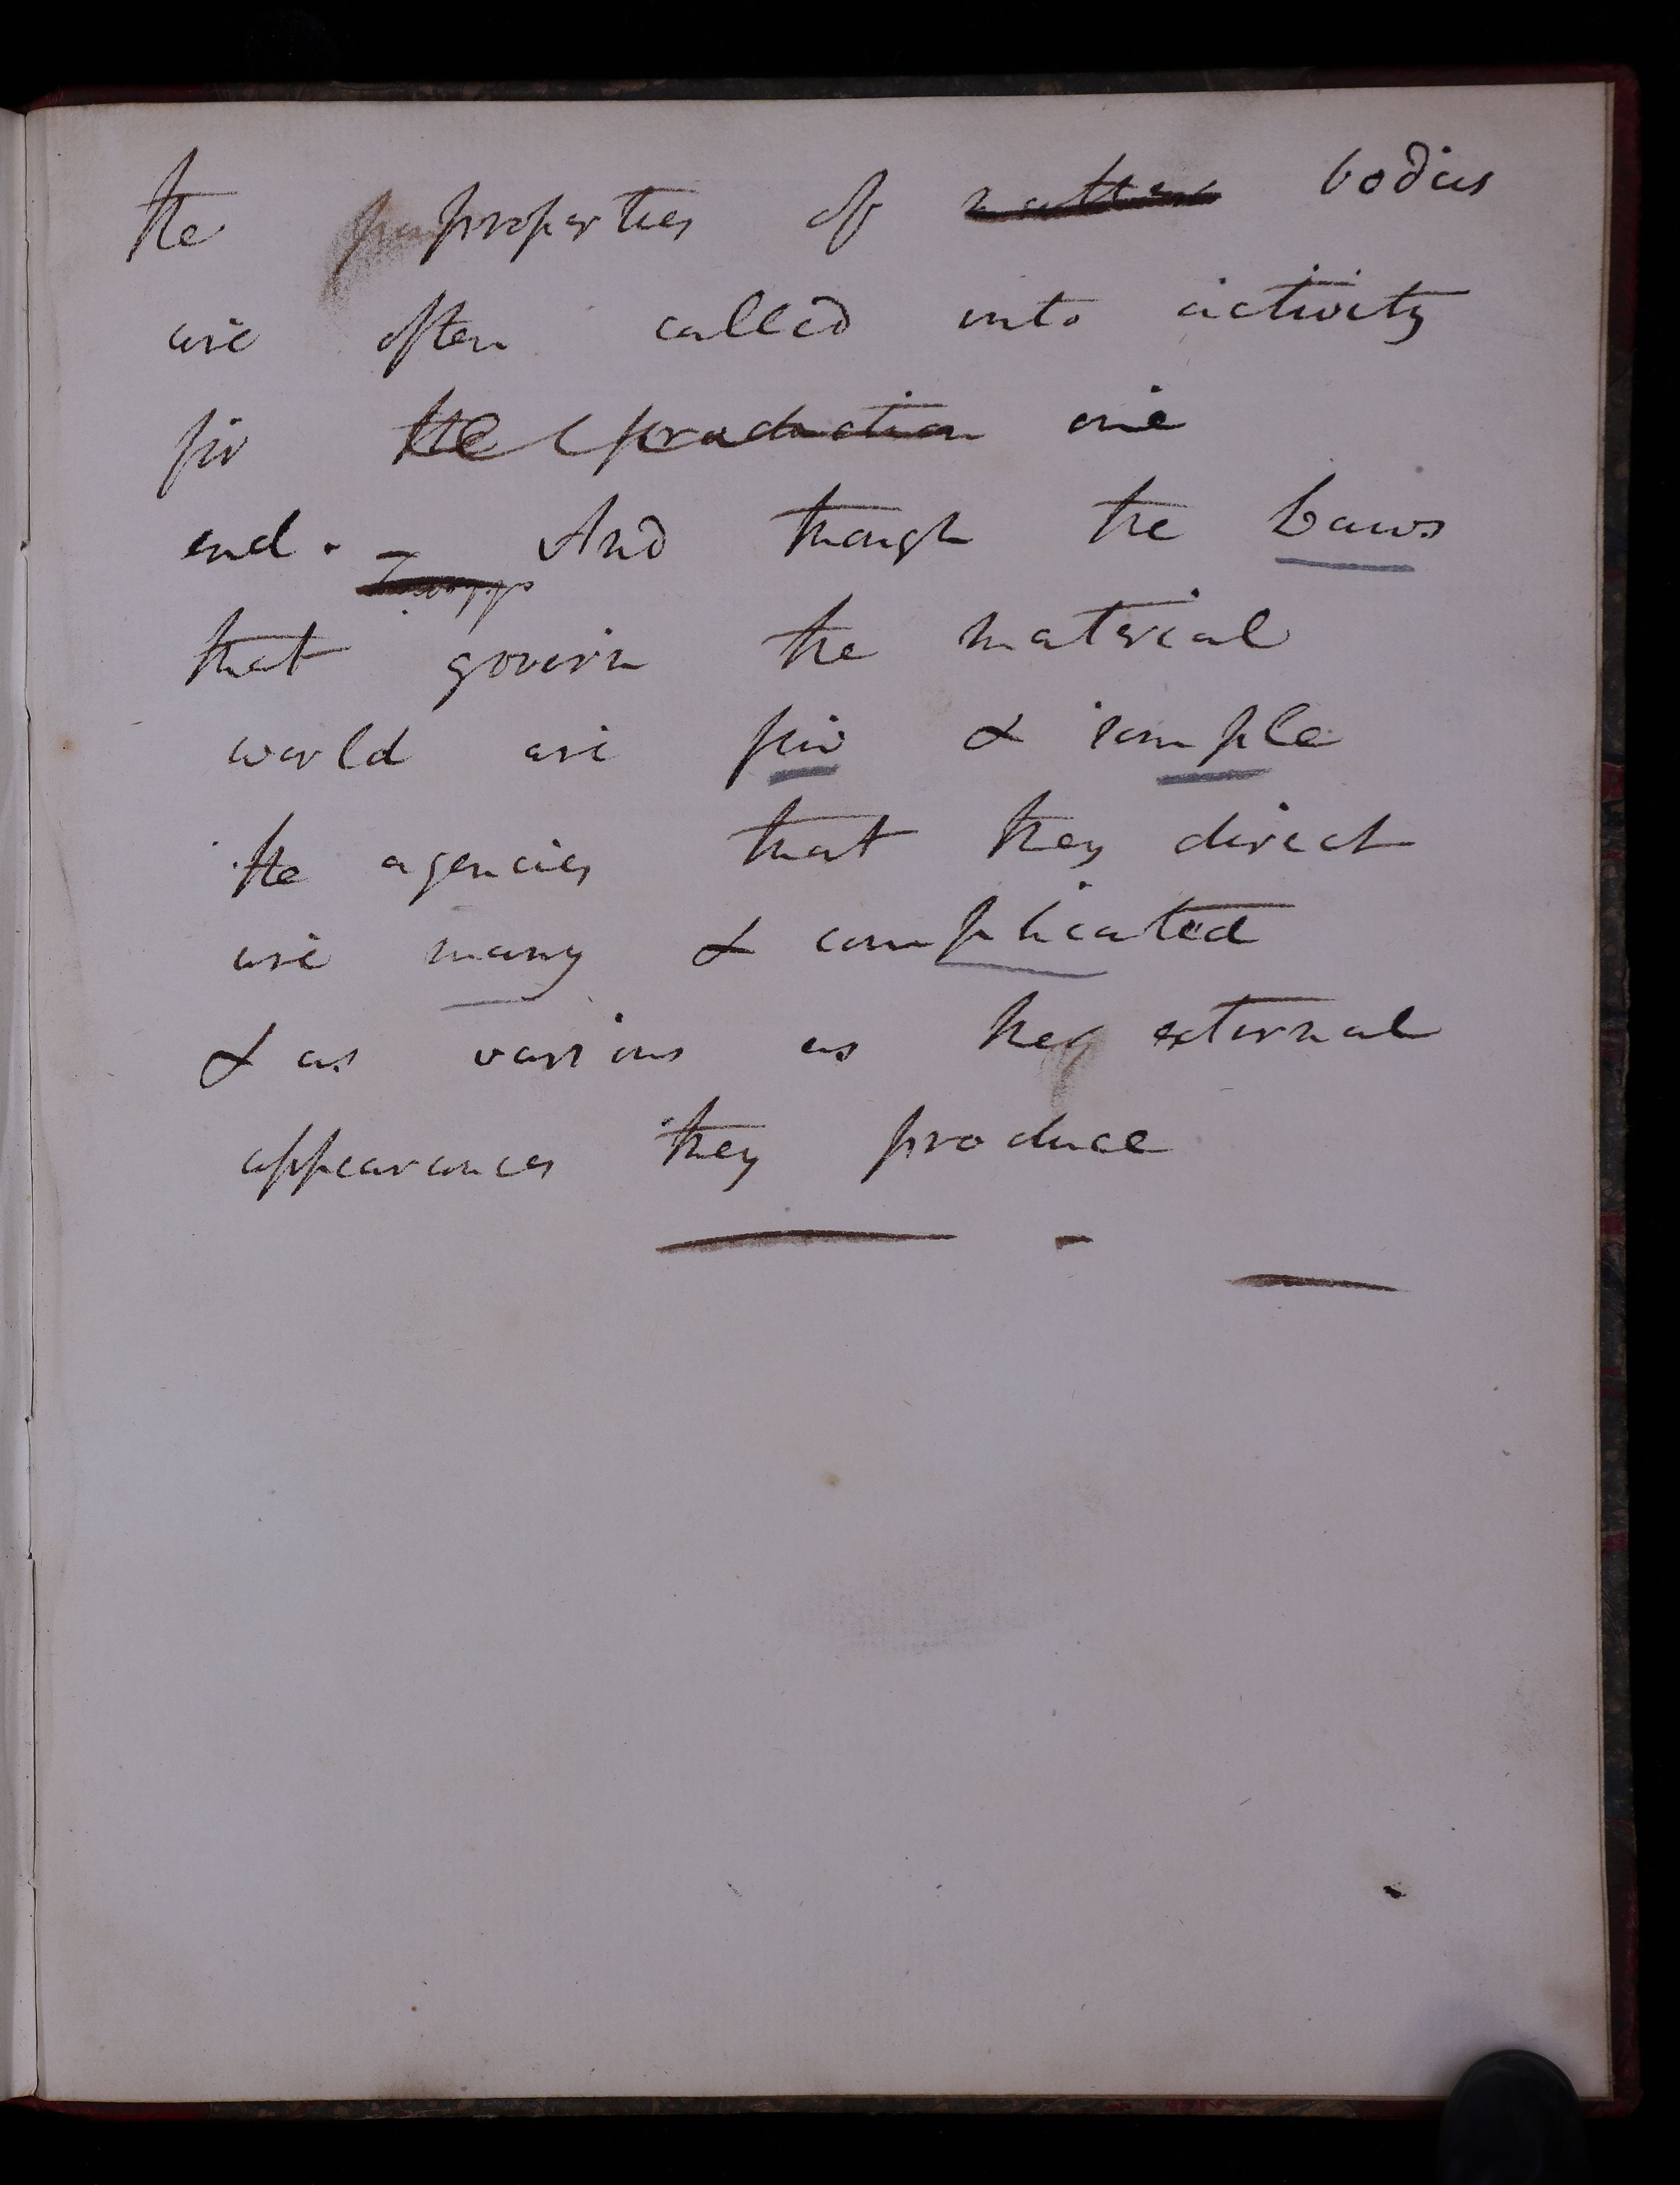 the properties of matter bodies
are often called into activity
for the production one
end. - And though the Laws
that govern the material
world are few & simple
the agencies that they direct
are many & complicated
& as various as the external
appearances they produce